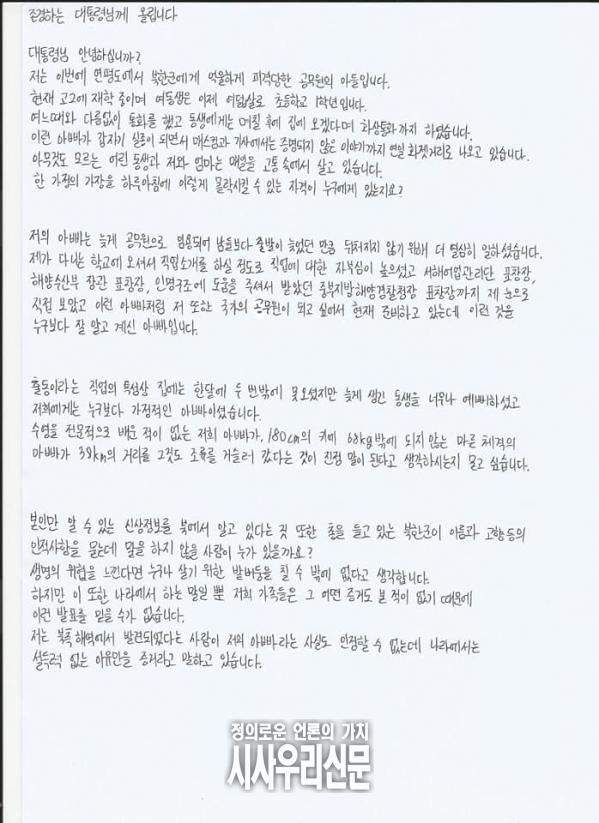 존경하는 대통령님께 올립니다
대통령님 안녕하십니까?
저는 이번에 연평도에서 북한군에게 억울하게 피격당한 공무원의 아들입니다.
현재 고2에 재학 중이며 여동생은 이제 여덟살로 초등학교 1학년입니다.
여느때와 다름없이 통화를 했고 동생에게는 며칠 후에 집에 오겠다며 화상통화까지 하였습니다.
이런 아빠가 갑자기 실종이 되면서 매스컴과 기사에서는 증명되지 않은 이야기까지 연일 화젯거리로 나오고 있습니다.
아무것도 모르는 어린 동생과 저와 엄마는 매일을 고통 속에서 살고 있습니다.
한 가정의 가장을 하루아침에 이렇게 몰락시킬 수 있는 자격이 누구에게 있는지요?
저의 아빠는 늦게 공무원으로 임용되어 남들보다 출발이 늦었던 만큼 뒤처지지 않기 위해 더 열심히 일하셨습니다.
제가 다니는 학교에 오셔서 직업소개를 하실 정도로 직업에 대한 자부심이 높으셨고 서해어업관리단 표창장,
해양수산부 장관 표창장, 인명구조에 도움을 주셔서 받았던 중부지방해양경찰청장 표창장까지 제 눈으로
직접 보았고 이런 아빠처럼 저 또한 국가의 공무원이 되고 싶어서 현재 준비하고 있는데 이런 것을
누구보다 잘 알고 계신 아빠입니다.
출동이라는 직업의 특성상 집에는 한달에 두 번밖에 못오셨지만 늦게 생긴 동생을 너무나 예뻐하셨고
저희에게는 누구보다 가정적인 아빠이셨습니다.
수영을 전문적으로 배운 적이 없는 저희 아빠가, 180cm의 키에 68kg밖에 되지 않는 마른 체격의
아빠가 38km의 거리를 그것도 조류를 거슬러 갔다는 것이 진정 말이 된다고 생각하시는지 묻고 싶습니다.
본인만 알 수 있는 신상정보를 북에서 알고 있다는 것 또한 총을 들고 있는 북한군이 이름과 고향 등의
인적사항을 묻는데 말을 하지 않을 사람이 누가 있을까요?
생명의 위협을 느낀다면 누구나 살기 위한 발버둥을 칠 수 밖에 없다고 생각합니다.
하지만 이 또한 나라에서 하는 말일 뿐 저희 가족들은 그 어떤 증거도 본 적이 없기 때문에
이런 발표를 믿을 수가 없습니다.
저는 북측 해역에서 발견되었다는 사람이 저의 아빠라는 사실도 인정할 수 없는데 나라에서는
설득력 없는 이유만을 증거라고 말하고 있습니다.
정의로운 언론의 가치
시사우리신문